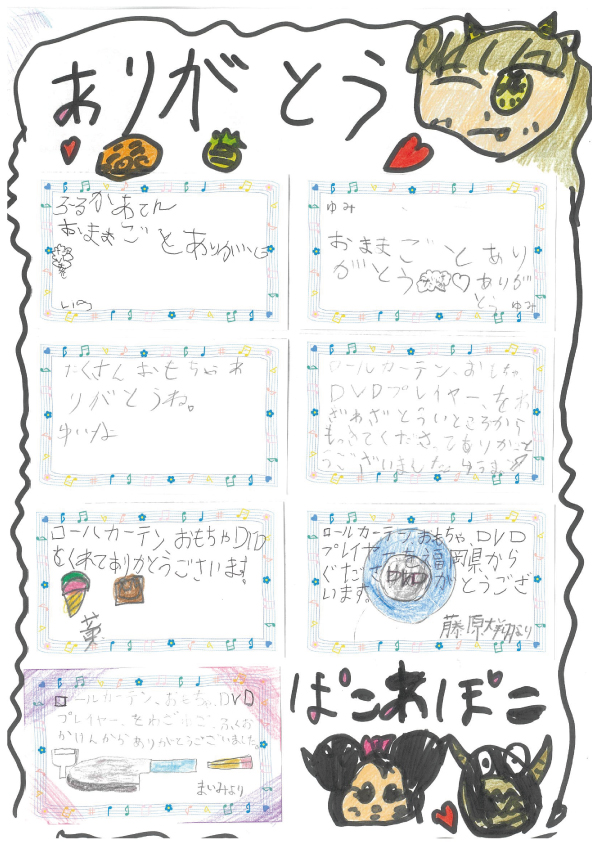 ありがとう
ろるかあてん
おままごとありがとう
ゆみ
おままごとあり
がとう ありが
とう ゆみ
たくさんおもちゃあ
りがとうね。
ゆいな
ロールカーテン、おもちゃ、
DVDプレイヤー、をわ
ざわざとういところから
もってきてくださってありがと
うございました。
ロールカーテン、おもちゃDVD
をくれてありがとうございます。
ロールカーテン、おもちゃ、DVD
プレイヤーを福岡県から
ください
DVD
がとうござ
います。
藤原
より
ロールカーテン、おもちゃ、DVD
プレイヤー、をわざわざ、ふくお
かけんからありがとうございました。
まいみより
ぱこあぽこ